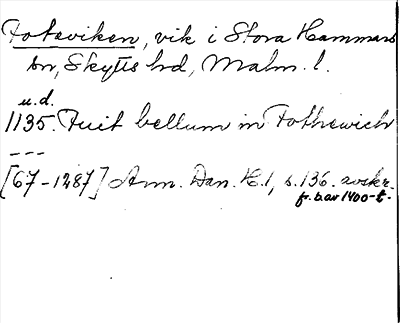 Fotaviken, vik i Stora Hammars
sn, Skytts hd, Malm. l.
u.d.
1135. Fuit bellum in Fothewich
---
[67-1287] Ann. Dan. H. 1, s. 136. avskr.
fr. b. av 1400-t.